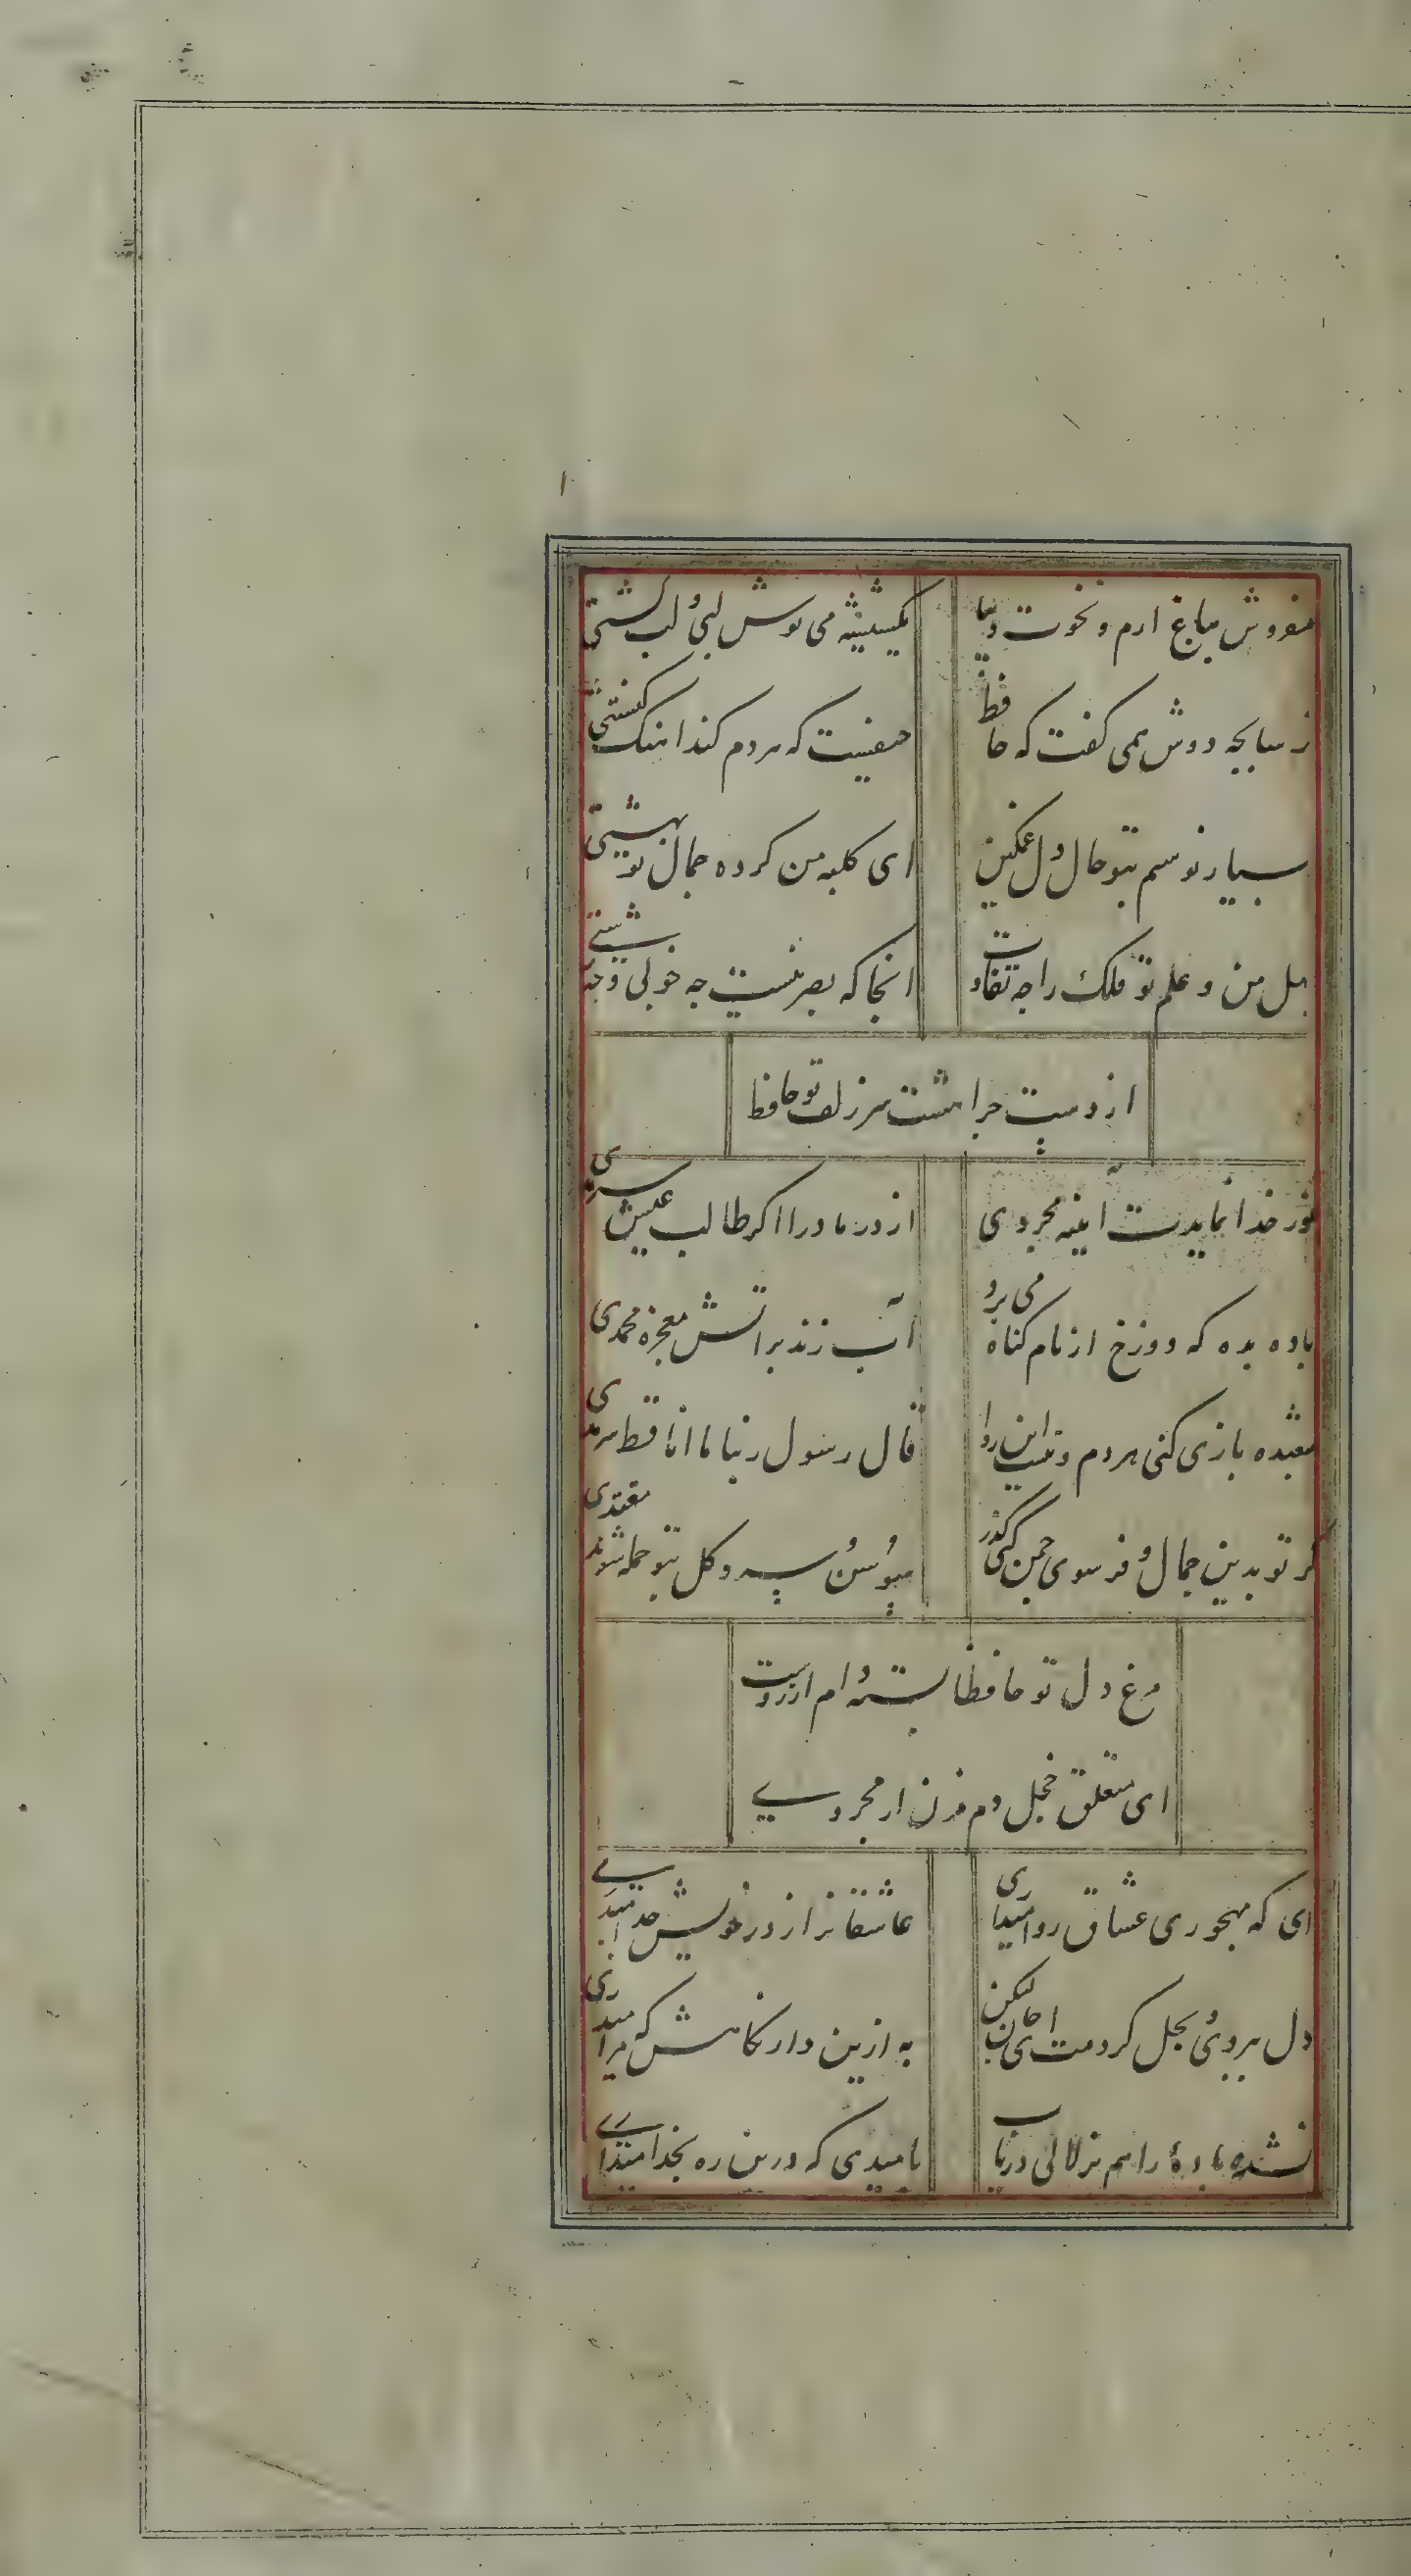 مفروش بباغ ارم و نخوت دنیا
یکشیشه می نوش لبی و لب کشتی
ترسابچه دوش همی کفت که حافظ
حیفیست که هردم کند اهنک کنشتی
بسیار نوسم بتو حال دل غمکین
ای کلبه من کرده جمال تو بهشتی
جهل من و علم تو فلک را چه تفاوت
انجا که بصر نیست چه خوبی و چه شتی
از دست چرا هشت سر زلف تو حافظ
نور خدا نمایدت آینه مجردی
از در ما درا اکر طالب عیش سرمدی
باده بده که دوزخ ار نام کناه می برد
آب زند بر اتش معجزه محمدی
شعبده بازی کنی هردم و نیست این روا
قال رسول ربنا ما انا قط مردی
کر تو بدین جمال و فر سوی چمن کنی کذر
سوسن سرو کل بتو جمله شوند مقتدی
مرغ دل تو حافظا بسته دام ارزوست
ای متعلق خجل دم مزن از مجردی
ای که مهجوری عشاق روا میداری
عاشقانرا ز در خویش جدا میداری
دل ببردی و بحل کردمت ای جان لیکن
به ازین دار نکاهش که مرا میداری
تشنه بادیه را هم بزلالی دریاب
بامیدی که درین ره بخدا میداری